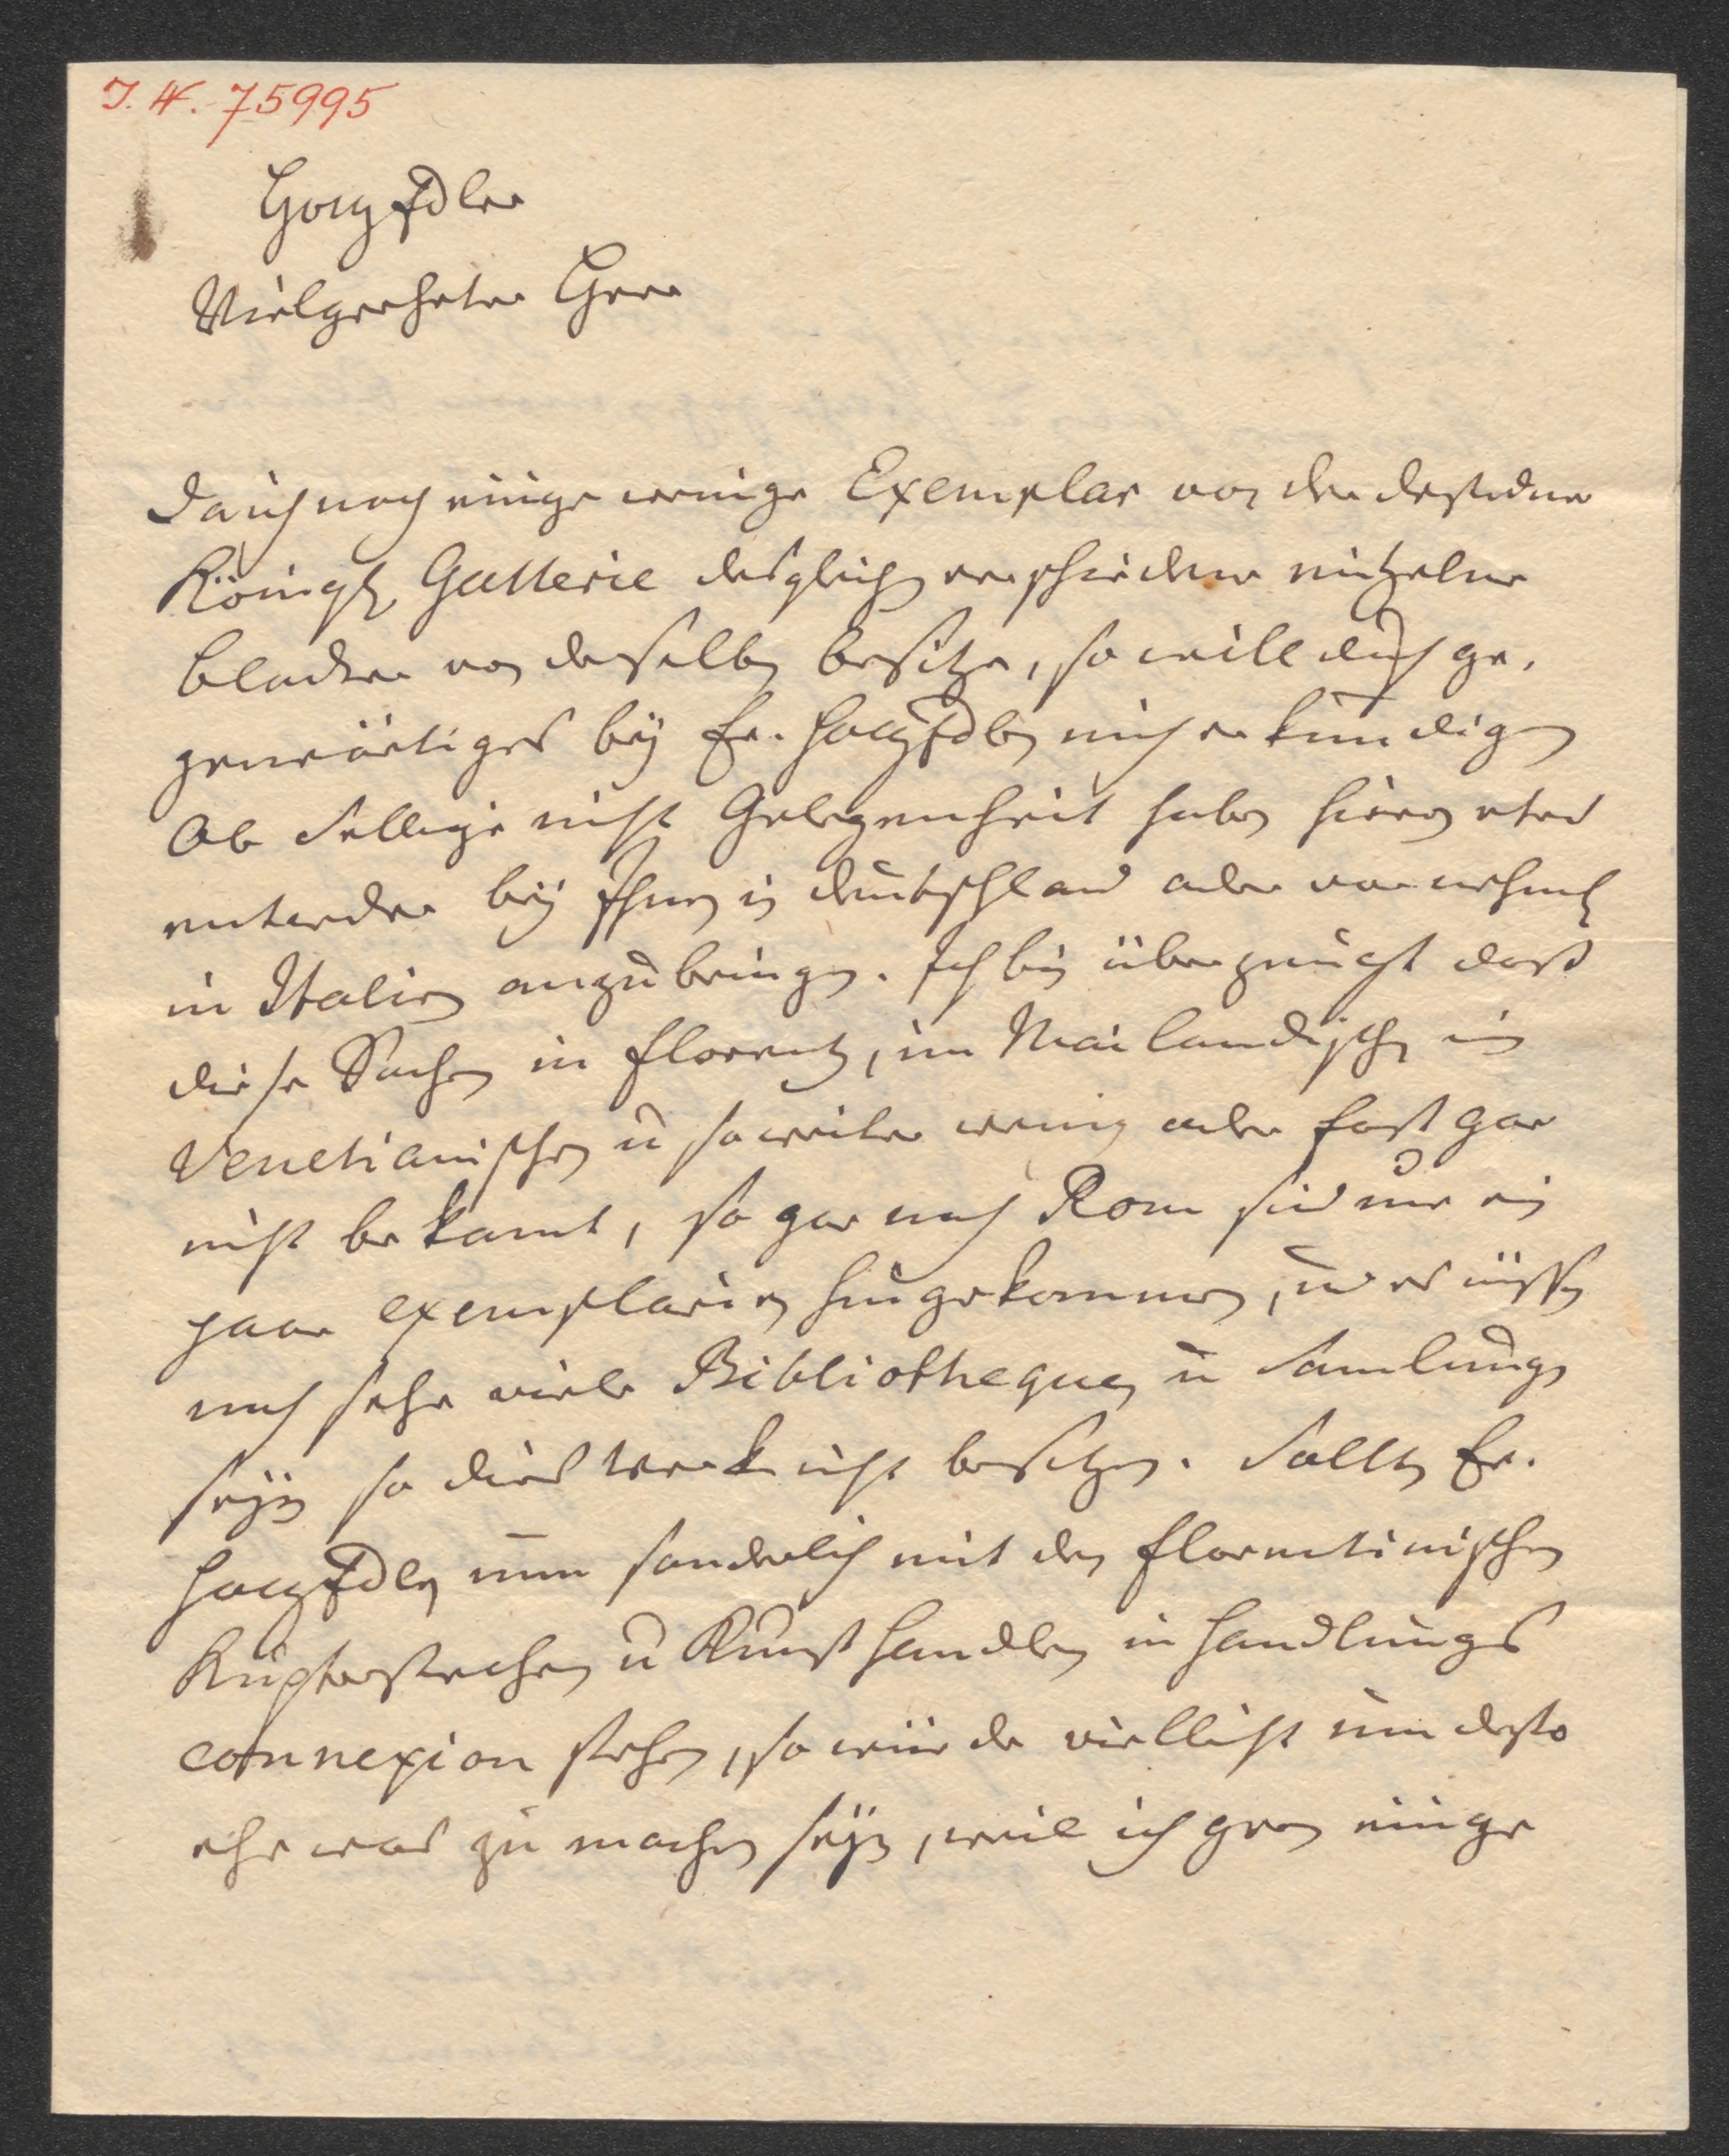 I. N. 75995
HochEdler
Vielgeehrter Herr
Da ich noch einige wenige Exemplar von der dresdner
Königl. Gallerie desgleichen verschiedene eintzelne
Bladter von derselben besitze, so will durch ge-
genwärtiges bey Er. HochEdlen mich erkundigen
Ob Selbige nicht Gelegenheit haben hievon etwas
entweder bey Ihnen in deutschland oder vornehml
in Italien anzubringen. Ich bin überzeugt dass
diese Sachen in Florentz, im Mailandischen im
Venetianischen u so weiter wenig oder fast gar
nicht bekannt, so gar nach Rom sind nur ein
paar exemplarien hingekommen, und es müssen
noch sehr viele Bibliothequen u Samlungen
seyn so dies Werck nicht besitzen. Sollten Er.
HochEdlen nun sonderlich mit den florentinischen
Kupferstechern u Kunsthandlern in Handlungs
connexion stehen, so würde vielleicht um desto
ehr was zu machen seyn, weil ich gern einige